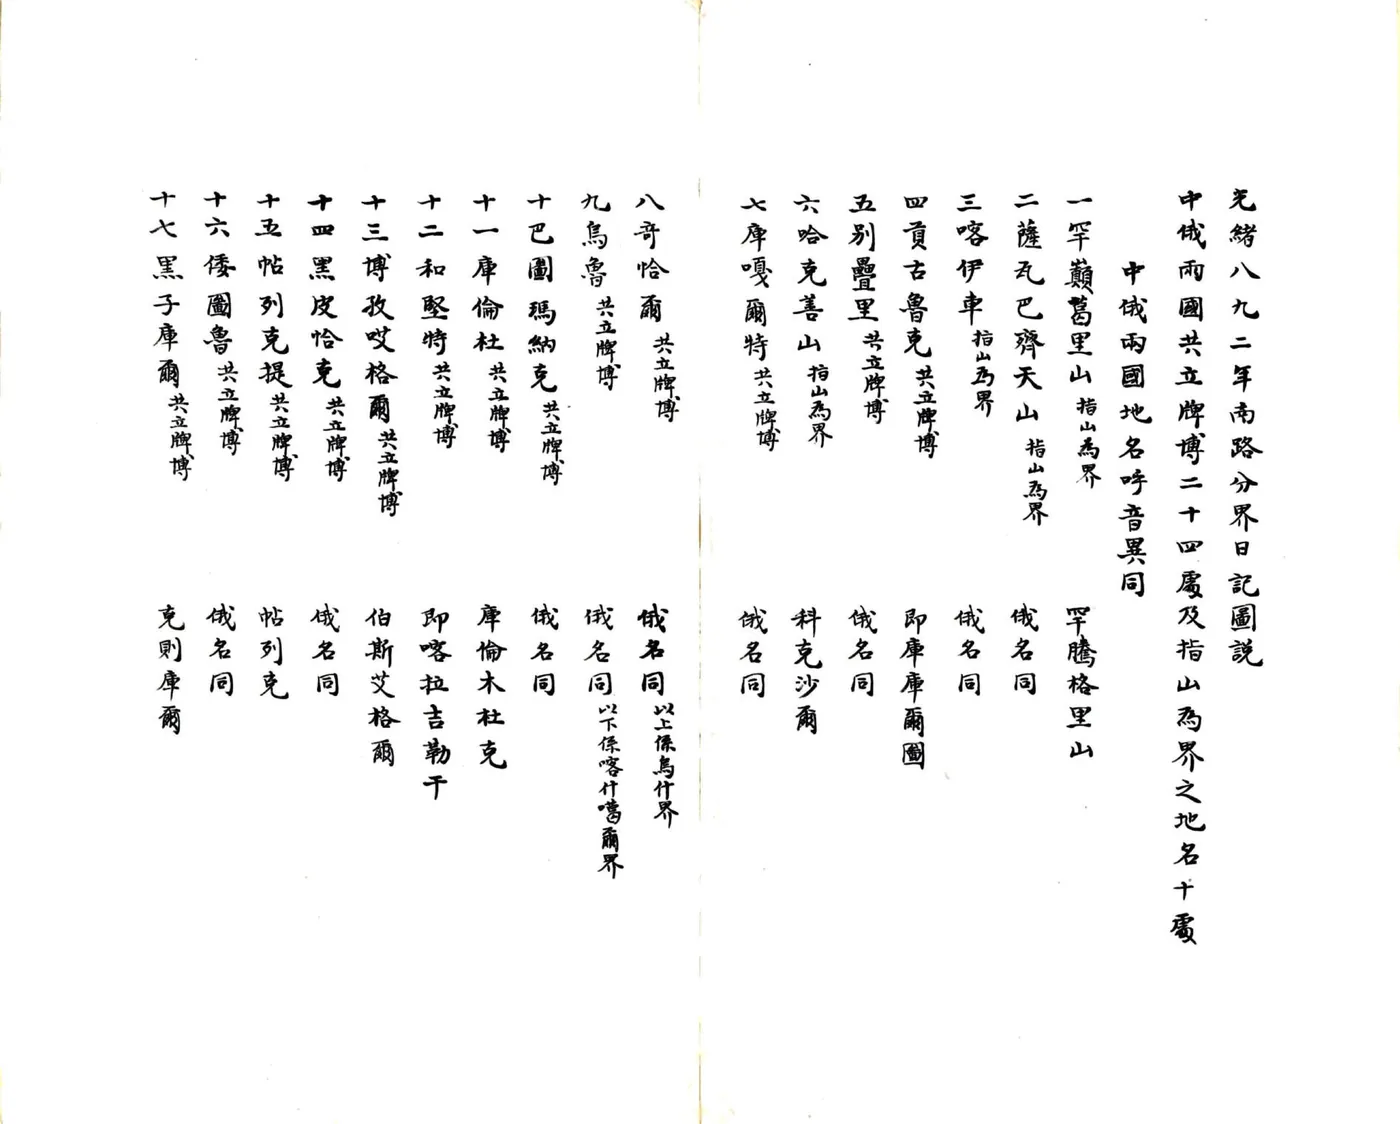 光緒八九二年南路分界日記圖説
中俄兩國共立牌博二十四處及指山為界之地名十處
中俄兩國地名呼音異同
一罕巔葛里山 指山為界 罕騰格里山
二薩瓦巴齊天山 指山為界 俄名同
三喀伊車 指山為界 俄名同
四貢古魯克 共立牌博 即庫庫爾圖
五別疊里 共立牌博 俄名同
六哈克善山 指山為界 科克沙爾
七庫嘎爾特 共立牌博 俄名同
八哥恰爾 共立牌博 俄名同 以上係烏什界
九烏魯 共立牌博 俄名同 以下係喀什噶爾界
十巴圖瑪納克 共立牌博 俄名同
十一庫倫杜 共立牌博 庫倫木杜克
十二和堅特 共立牌博 即喀拉吉勒干
十三博孜哎格爾 共立牌博 伯斯艾格爾
十四黑皮恰克 共立牌博 俄名同
十五帖列克提 共立牌博 帖列克
十六倭圖魯 共立牌博 俄名同
十七黑子庫爾 共立牌博 克則庫爾